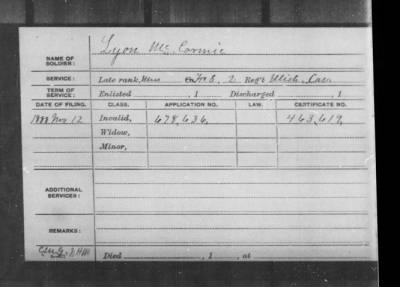 Lyon Mc Cormic
NAME OF SOLDIER:
SERVICE: Late rank, Mus Tr E, 2 Reg't Mich. Cav.
TERM OF SERVICE: Enlisted , 1 Discharged , 1
DATE OF FILING. CLASS. APPLICATION NO. LAW. CERTIFICATE NO.
1888 Nov 12 Invalid, 678,636, 463,619,
Widow,
Minor,
ADDITIONAL SERVICES:
REMARKS:
Died , 1 , at